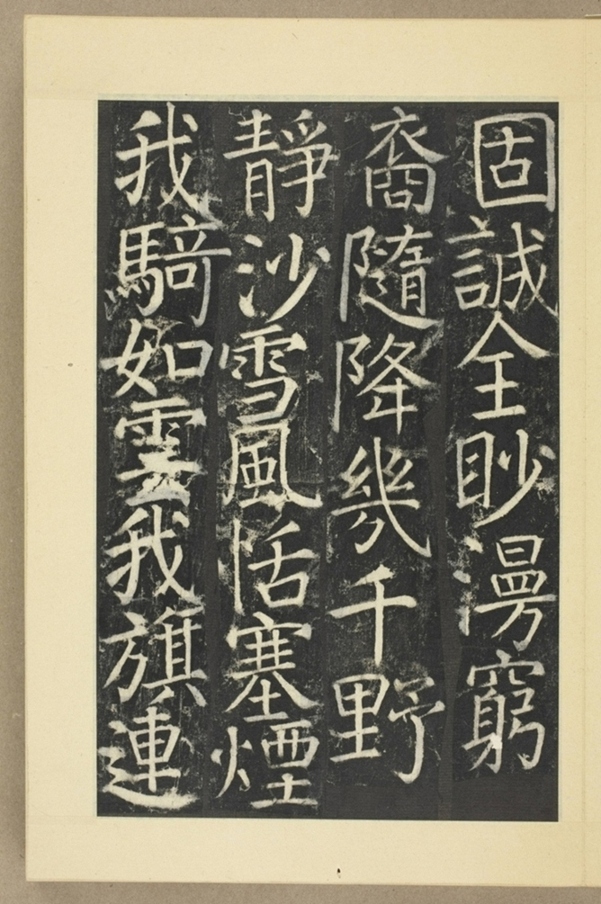 固誠全眇漫窮
裔隨降幾千野
靜沙雪風恬塞煙
我騎如雲我旗連